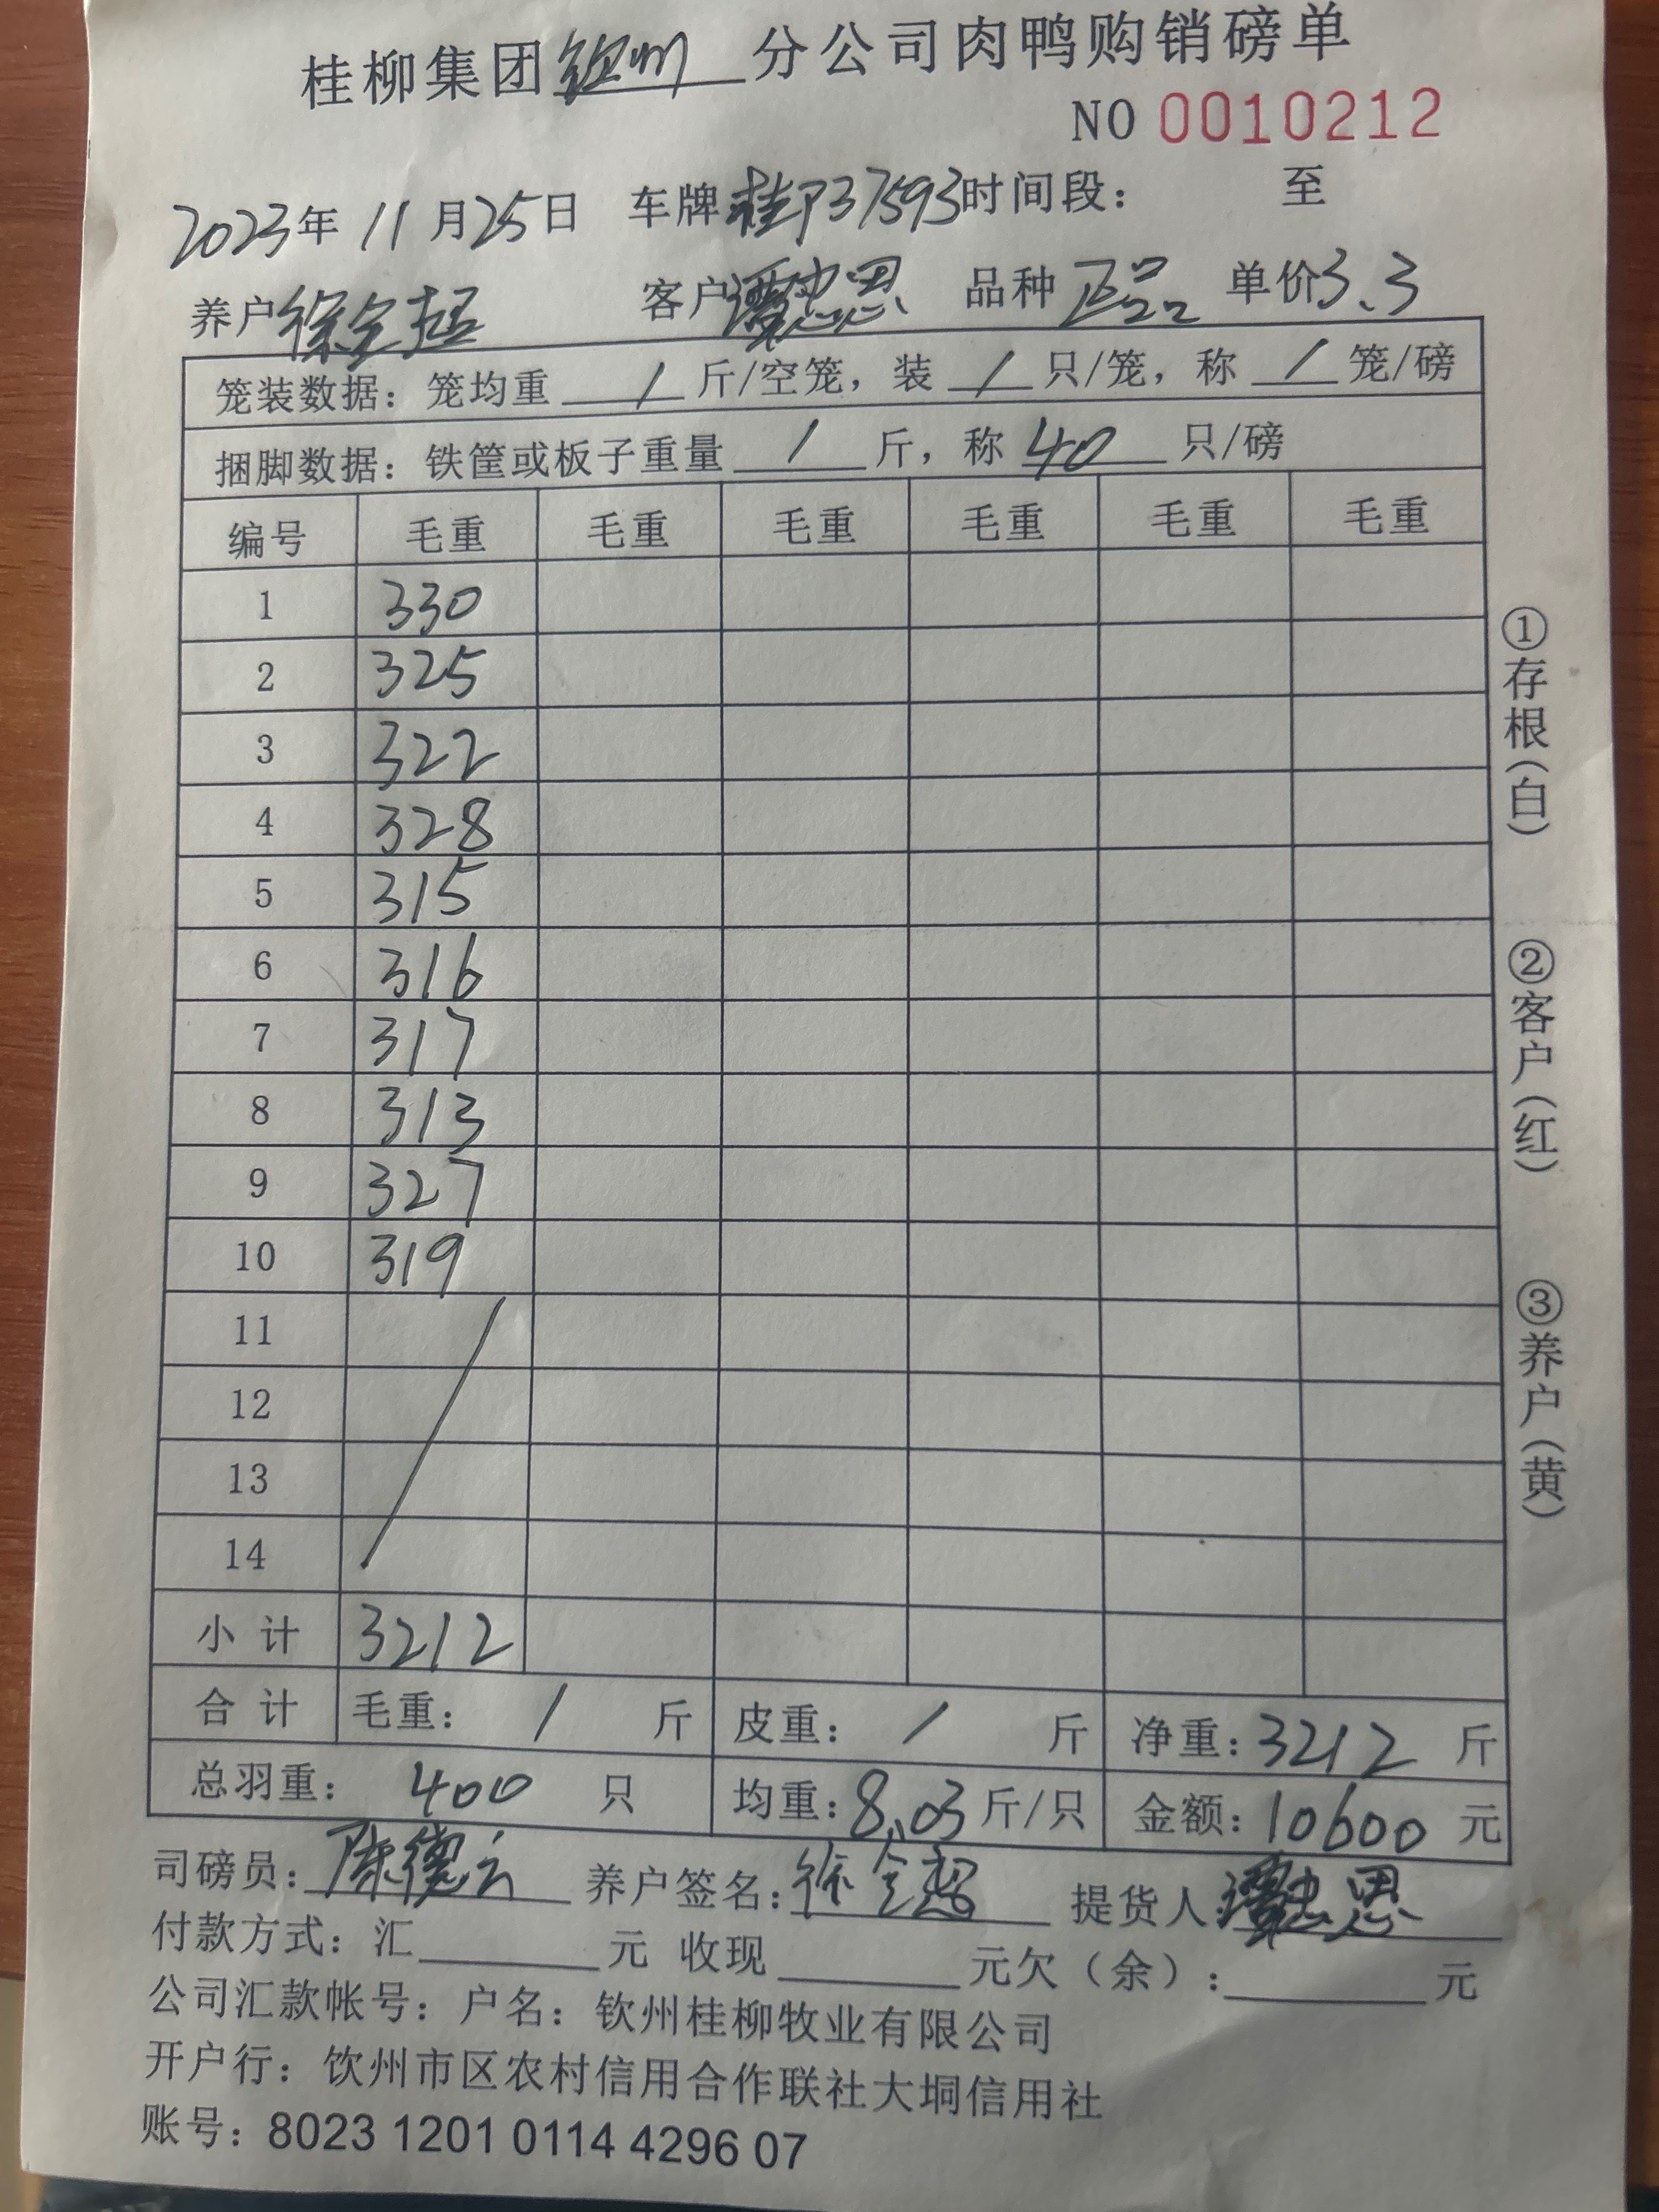 桂柳集团钦州分公司肉鸭购销磅单
NO 0010212
2023年 11月25日 车牌桂P37593时间段： 至
养户徐全 客户谭忠恩 品种 正品 单价3.3
笼装数据：笼均重 / 斤/空笼，装 / 只/笼，称 / 笼/磅
捆脚数据：铁筐或板子重量 / 斤，称 40 只/磅
编号 毛重 毛重 毛重 毛重 毛重 毛重
1 330
2 325
3 322
4 328
5 315
6 316
7 317
8 313
9 327
10 319
11
12
13
14
小 计 3212
合 计 毛重： / 斤 皮重： / 斤 净重：3212 斤
总羽重： 400 只 均重：8.03斤/只 金额：10600 元
司磅员：陈德云 养户签名：徐全 提货人：谭忠恩
付款方式：汇 元 收现 元欠（余）： 元
公司汇款帐号：户名：钦州桂柳牧业有限公司
开户行：饮州市区农村信用合作联社大垌信用社
账号：8023 1201 0114 4296 07
①存根（白）
②客户（红）
③养户（黄）